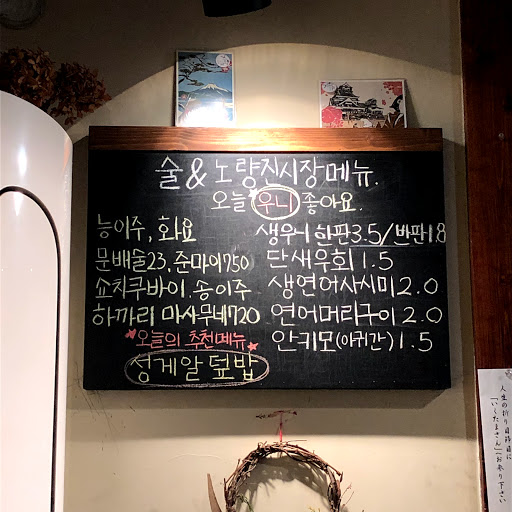 술 & 노량진시장메뉴.
오늘 우니 좋아요.
능이주, 화요
문배술23, 준마이750
쇼치쿠바이, 송이주
하까리 마사무네720
오늘의 추천메뉴
성게알 덮밥
생우니 한판3.5/반판1.8
단새우회 1.5
생연어사시미 2.0
연어머리구이 2.0
안키모(아귀간) 1.5
人生の折り目節目に
「いしたまさん」お参り下さい